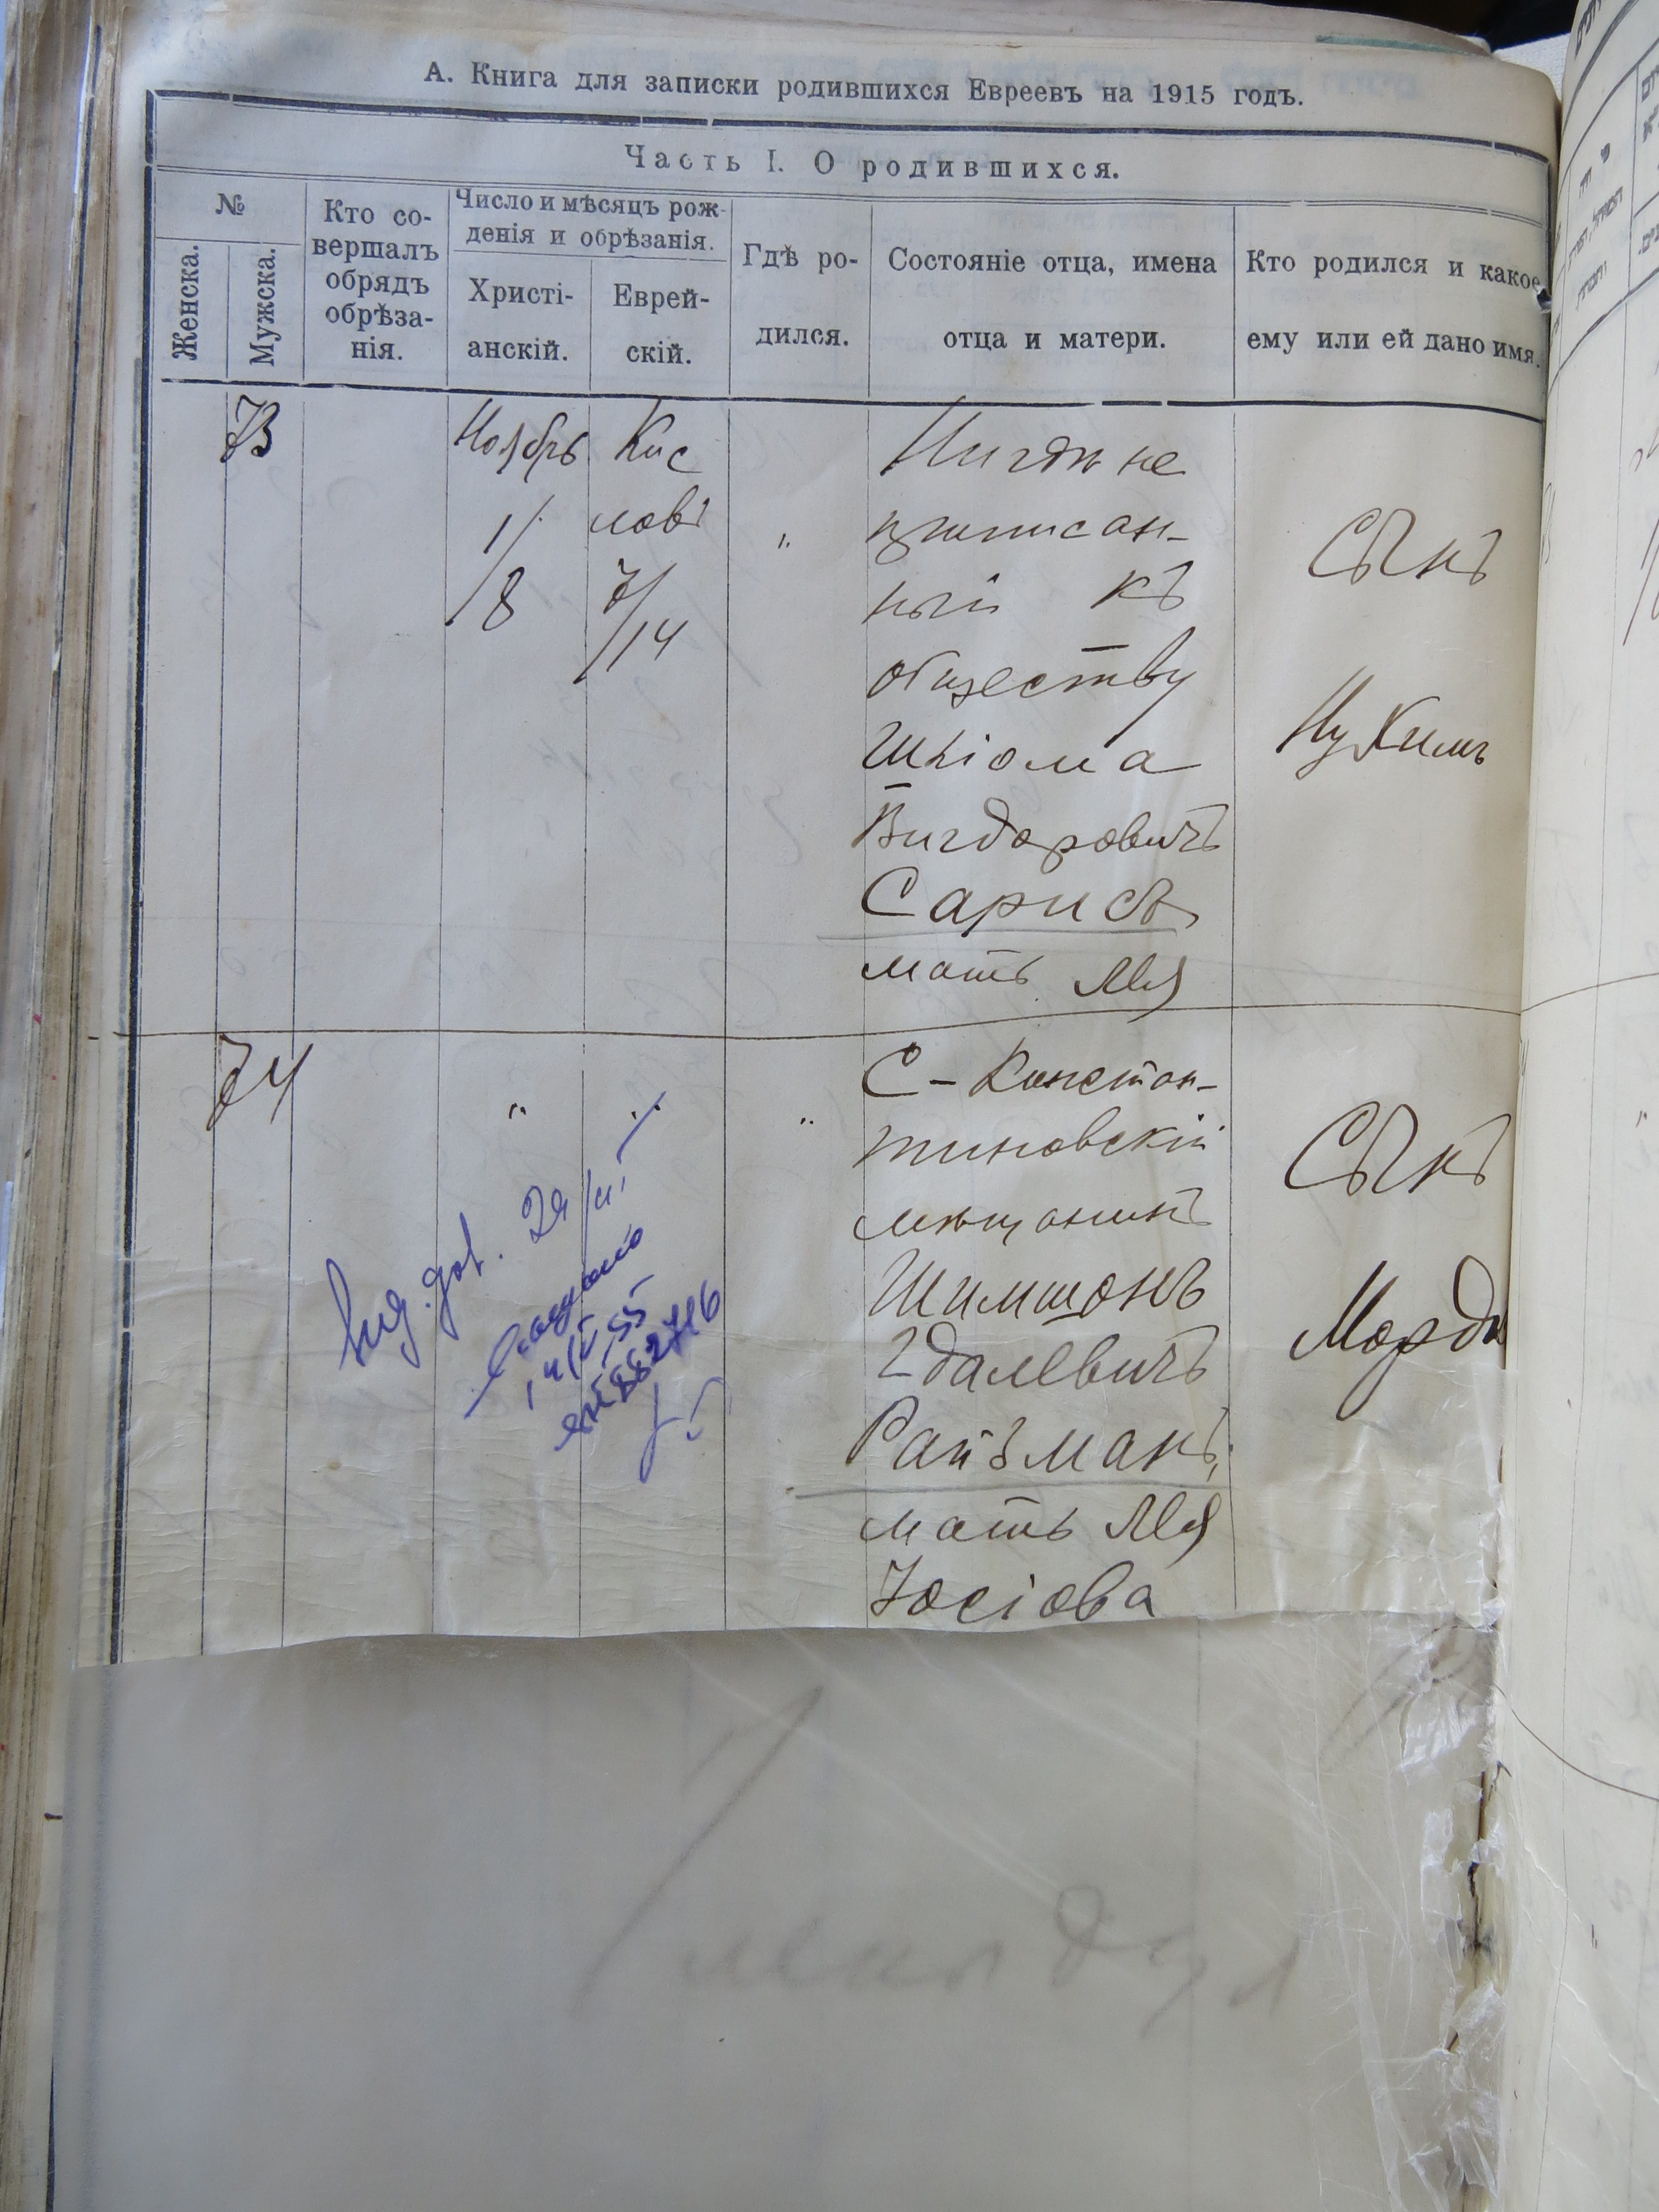 А. Книга для записки родившихся Евреевъ на 1915 годъ.
Часть I. О родившихся.
№
Женска.
Мужска.
Кто со-
вершалъ
обрядъ
обрѣза-
нія.
Число и мѣсяцъ рож-
денія и обрѣзанія.
Христі-
анскій.
Еврей-
скій.
Гдѣ ро-
дился.
Состояніе отца, имена
отца и матери.
Кто родился и какое
ему или ей дано имя.
73
Ноябрь
1/
/8
Кис
левъ
7/
/14
"
Нигдѣ не
приписан-
ный къ
обществу
Шліома
Вигдоровичъ
Сарисъ
мать Мея
Сынъ
Нухимъ
74
"
"
"
С-Констан-
тиновскій
мѣщанинъ
Шимшонъ
Гдалевичъ
Райзманъ,
мать Мея
Іосіова
Сынъ
Мордк